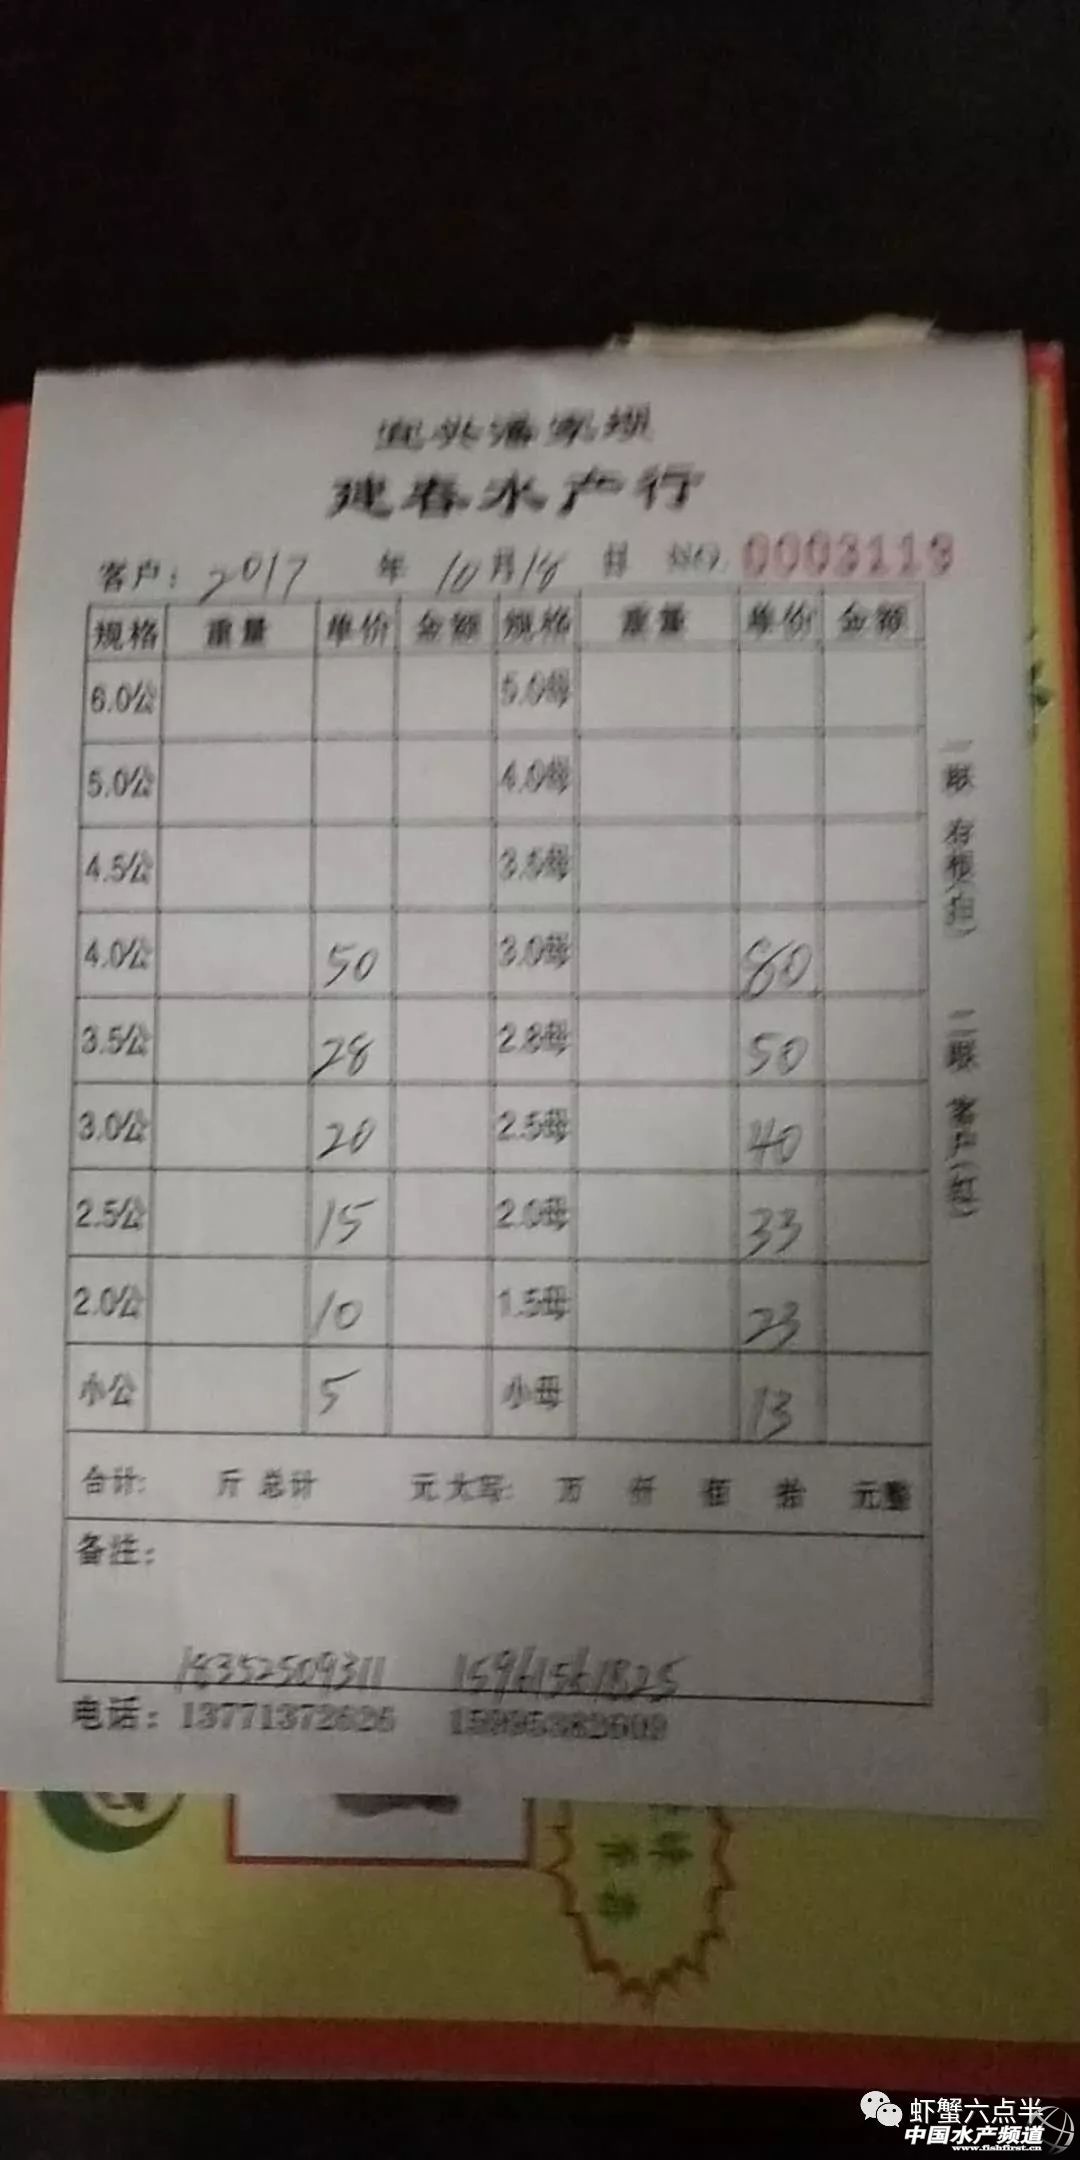 宜兴潘家坝
建春水产行
客户: 2017 年 10月18 日 NO. 0003113
规格 重量 单价 金额 规格 重量 单价 金额
6.0公 5.0母
5.0公 4.0母
4.5公 3.5母
4.0公 50 3.0母 80
3.5公 28 2.8母 50
3.0公 20 2.5母 40
2.5公 15 2.0母 33
2.0公 10 1.5母 23
小公 5 小母 13
合计: 斤 总计 元 大写: 万 仟 佰 拾 元整
备注:
18352509311 15961561825
电话: 13771372626
一联 存根(白) 二联 客户(红)
虾蟹六点半
中国水产频道
www.fishfirst.cn